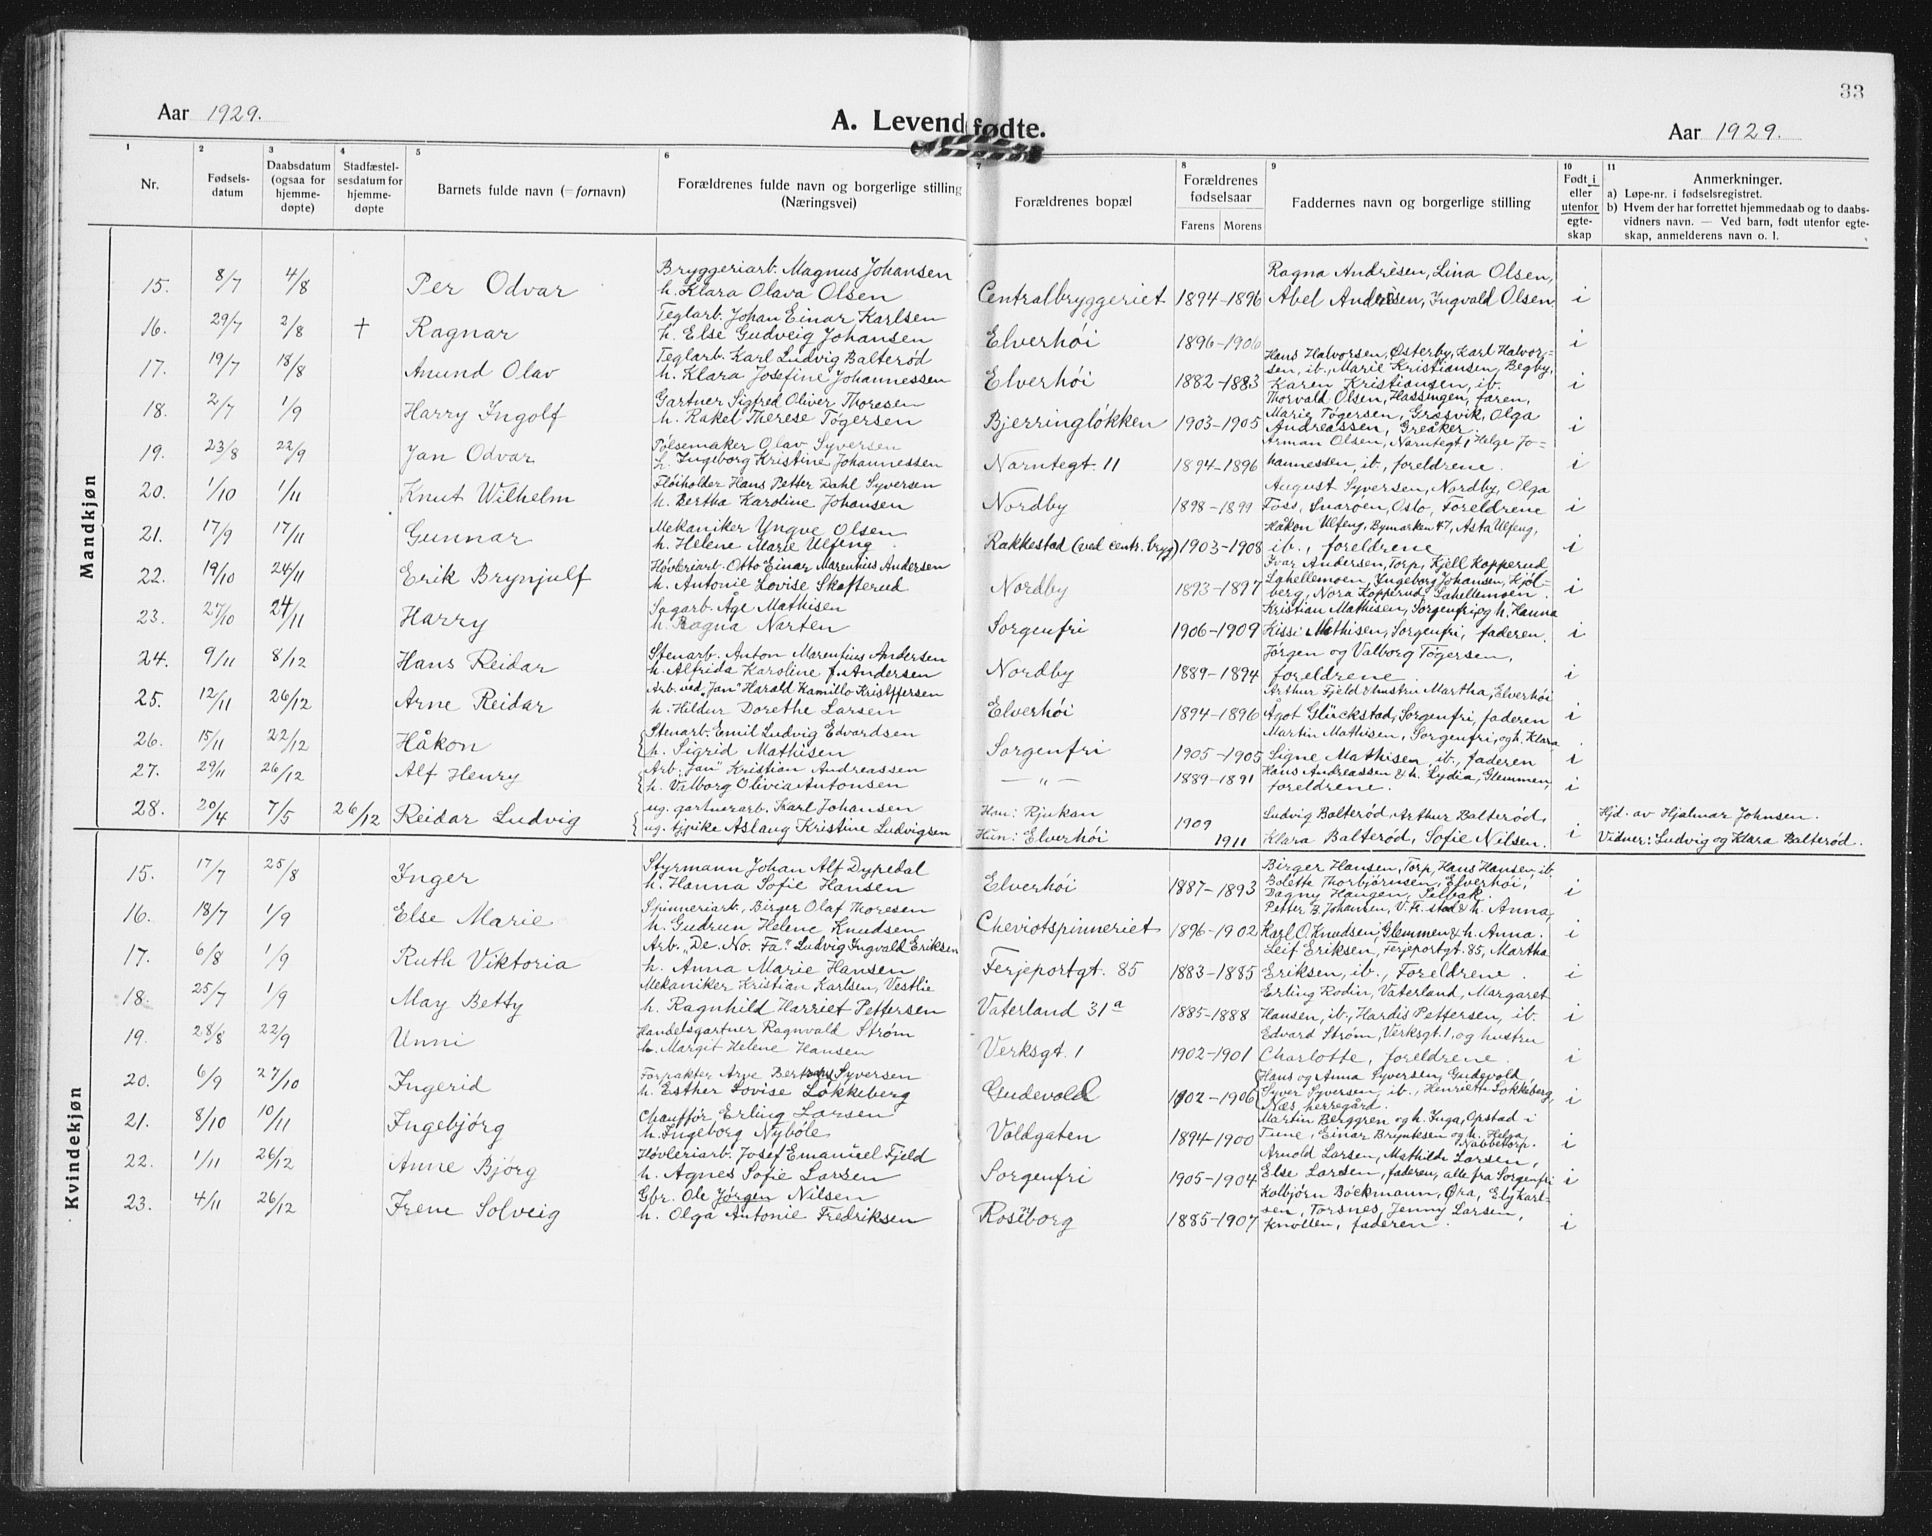 33
Aar 1929.
A. Levendefødte.
Aar 1929.
1 Nr.
2 Fødselsdatum
3 Daabsdatum (ogsaa for hjemmedøpte)
4 Stadfæstelsesdatum for hjemmedøpte
5 Barnets fulde navn (= fornavn)
6 Forældrenes fulde navn og borgerlige stilling (Næringsvei)
7 Forældrenes bopæl
8 Forældrenes fødselsaar Farens Morens
9 Faddernes navn og borgerlige stilling
10 Født i eller utenfor egteskap
11 Anmerkninger.
a) Løpe-nr. i fødselsregistret.
b) Hvem der har forrettet hjemmedaab og to daabsvidners navn. — Ved barn, født utenfor egteskap, anmelderens navn o. l.
Mandkjøn
15. 8/7 4/8 Per Odvar Bryggeriarb. Magnus Johansen h. Klara Olava Olsen Centralbryggeriet 1894-1896 Ragna Andresen, Lina Olsen, Abel Andresen, Ingvald Olsen i
16. 29/7 2/8 † Ragnar Teglarb. Johan Einar Karlsen h. Else Gudveig Johansen Elverhöi 1896-1906 i
17. 19/7 18/8 Amund Olav Teglarb. Karl Ludvig Balterød h. Klara Josefine Johannessen Elverhöi 1882-1883 Hans Halvorsen, Østerby, Karl Halvorsen, ib., Marie Kristiansen, Begby, Karen Kristiansen, ib. i
18. 2/7 1/9 Harry Ingolf Gartner Sigfred Oliver Thoresen h. Rakel Therese Tøgersen Bjerringløkken 1903-1905 Thorvald Olsen, Hassingen, faren, Marie Tøgersen, Gresvik, Olga Andreassen, Greåker. i
19. 23/8 22/9 Jan Odvar Pølsemaker Olav Syversen h. Ingeborg Kristine Johannessen Narntegt. 11 1894-1896 Arman Olsen, Narntegt, Helge Johannessen, ib., foreldrene. i
20. 1/10 1/11 Knut Wilhelm Fløiholder Hans Petter Dahl Syversen h. Bertha Karoline Johansen Nordby 1898-1899 August Syversen, Nordby, Olga Foss, Snarøen, Oslo, Foreldrene i
21. 17/9 17/11 Gunnar Mekaniker Yngve Olsen h. Helene Marie Ulfeng Rakkestad (ved centr. bryg) 1903-1908 Håkon Ulfeng, Bymarken 47, Asta Ulfeng, ib., foreldrene i
22. 19/10 24/11 Erik Brynjulf Høvleriarb. Otto Einar Marentius Andersen h. Antonie Lovise Skofterud Nordby 1893-1897 Ivar Andersen, Torp, Kjell Kopperud Lahellemoen, Ingeborg Johansen, Kjølberg, Nora Kopperud, Lahellemoen. i
23. 27/10 24/11 Harry Sagarb. Åge Mathisen h. Ragna Narten Sorgenfri 1906-1909 Kristian Mathisen, Sorgenfri, og h. Hanna Kissi Mathisen, Sorgenfri, faderen. i
24. 9/11 8/12 Hans Reidar Stenarb. Anton Marentius Andersen h. Alfrida Karoline f. Andersen Nordby 1889-1894 Jörgen og Valborg Tøgersen, foreldrene. i
25. 12/11 26/12 Arne Reidar Arb. ved "Jan" Harald Kamillo Kristffersen h. Hildur Dorethe Larsen Elverhöi 1894-1896 Arthur Fjeld & hustru Martha, Elverhöi Ågot Glürckstad, Sorgenfri, faderen i
26. 15/11 22/12 Håkon Stenarb. Emil Ludvig Edvardsen h. Sigrid Mathisen Sorgenfri 1905-1905 Martin Mathisen, Sorgenfri, og h. Klara Signe Mathisen, ib., faderen i
27. 29/11 26/12 Alf Henry Arb. "Jan" Kristian Andreassen h. Valborg Olivia Antonsen — „ — 1889-1891 Hans Andreassen & h. Lydia, Glemmen, foreldrene. i
28. 20/4 7/5 26/12 Reidar Ludvig ug. gartnerarb. Karl Johansen ug. tjpike Aslaug Kristine Ludvigsen Han: Rjukan Hun: Elverhöi 1909 1911 Ludvig Balterød, Arthur Balterød, Klara Balterød, Sofie Nilsen. i Hjd. av Hjalmar Johnsen. Vidner: Ludvig og Klara Balterød.
Kvindekjøn
15. 17/7 25/8 Inger Styrmann Johan Alf Dypedal h. Hanna Sofie Hansen Elverhöi 1887-1893 Birger Hansen, Torp, Hans Hansen, ib. Bolette Thorbjörnsen, Elverhöi, Dagny Haugen, Selbak. i
16. 18/7 1/9 Else Marie Spinneriarb., Birger Olaf Thoresen h. Gudrun Helene Knudsen Cheviotspinneriet 1896-1902 Petter B. Johansen, V. Fr.stad & h. Anna, Karl O. Knudsen, Glemmen & h. Anna. i
17. 6/8 1/9 Ruth Viktoria Arb. "De. No. Fa." Ludvig Ingvald Eriksen h. Anna Marie Hansen Ferjeportgt. 85 1883-1885 Leif Eriksen, Ferjeportgt. 85, Martha Eriksen, ib., Foreldrene. i
18. 25/7 1/9 May Betty Mekaniker Kristian Karlsen, Vestlie h. Ragnhild Harriet Pettersen Vaterland 31a 1885-1888 Erling Rodin, Vaterland, Margaret Hansen, ib., Hardis Pettersen, ib. i
19. 28/8 22/9 Unni Handelsgartner Ragnvald Strøm h. Margit Helene Hansen Verksgt. 1 1902-1901 Edvard Strøm, Verksgt. 1, og hustru Charlotte, foreldrene. i
20. 6/9 27/10 Ingerid Forpakter Arve Syversen h. Esther Lovise Løkkeberg Gudevold 1902-1906 Hans og Anna Syversen, Gudevold Syver Syversen, ib., Henriette Løkkeberg, Næs, herregård. i
21. 8/10 10/11 Ingebjørg Chauffør Erling Larsen h. Ingeborg Nybøle Voldgaten 1894-1900 Martin Berggren og h. Inga, Opstad i Tune, Einar Bryntesen og h. Helga, Nabbetorp. i
22. 1/11 26/12 Anne Bjørg Høvleriarb. Josef Emanuel Fjeld h. Agnes Sofie Larsen Sorgenfri 1905-1904 Arnold Larsen, Mathilde Larsen, Else Larsen, faderen, alle fra Sorgenfri i
23. 4/11 26/12 Irene Solveig Gbr. Ole Jørgen Nilsen h. Olga Antonie Fredriksen Rosenborg 1885-1907 Kolbjørn Böckmann, Øra, Ely Karlsen, Torsnes, Jenny Larsen, Knollen, faderen. i